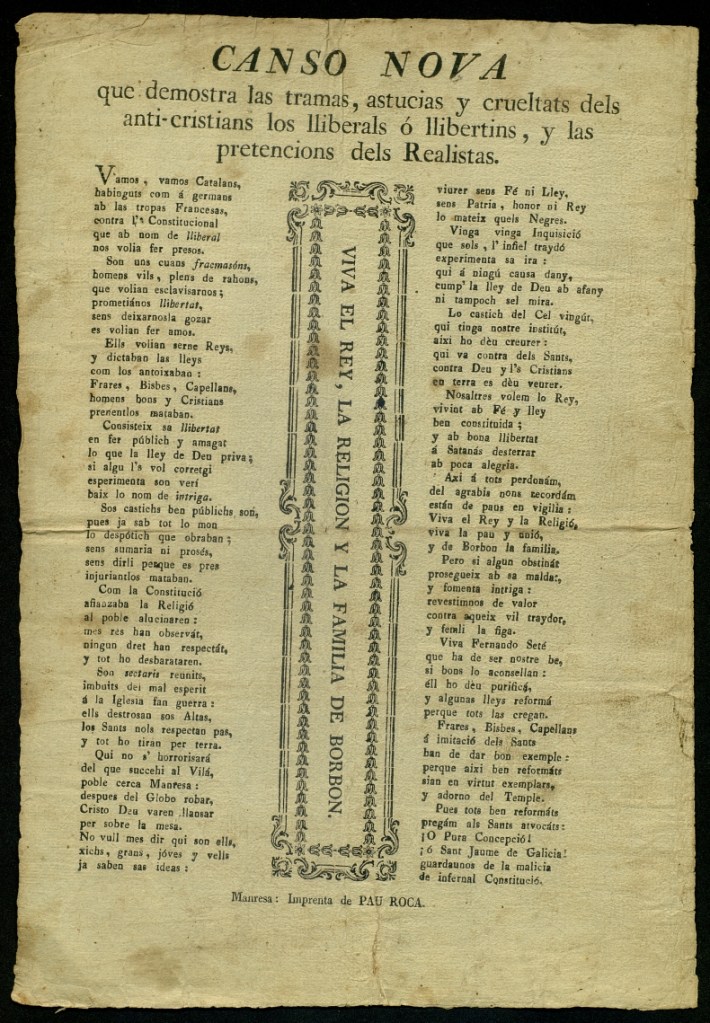 CANSO NOVA
que demostra las tramas, astucias y crueltats dels
anti-cristians los lliberals ó llibertins, y las
pretencions dels Realistas.
Vamos, vamos Catalans,
habinguts com á germans
ab las tropas Francesas,
contra l's Constitucional
que ab nom de lliberal
nos volia fer presos.
Son uns cuans fracmasóns,
homens vils, plens de rahons,
que volian esclavisarnos;
prometiános llibertat,
sens deixarnosla gozar
es volian fer amos.
Ells volian serne Reys,
y dictaban las lleys
com los antoixaban:
Frares, Bisbes, Capellans,
homens bons y Cristians
prenentlos mataban.
Consisteix sa llibertat
en fer públich y amagat
lo que la lley de Deu priva;
si algu l's vol corretgi
esperimenta son verí
baix lo nom de intriga.
Sos castichs ben públichs son,
pues ja sab tot lo mon
lo despótich que obraban;
sens sumaria ni prosés,
sens dirli perque es pres
injuriantlos mataban.
Com la Constitució
afianzaba la Religió
al poble alucinaren:
mes res han observát,
ningun dret han respectát,
y tot ho desbarataren.
Son sectaris reunits,
imbuits del mal esperit
á la Iglesia fan guerra:
ells destrosan sos Altas,
los Sants nols respectan pas,
y tot ho tiran per terra.
Qui no s' horrorisará
del que succehi al Vilá,
poble cerca Manresa:
despues del Globo robar,
Cristo Deu varen llansar
per sobre la mesa.
No vull mes dir qui son ells,
xichs, grans, jóves y vells
ja saben sas ideas:
VIVA EL REY, LA RELIGION Y LA FAMILIA DE BORBON.
viurer sens Fé ni Lley,
sens Patria, honor ni Rey
lo mateix quels Negres.
Vinga vinga Inquisició
que sols, l' infiel traydó
experimenta sa ira:
qui á ningú causa dany,
cump' la lley de Deu ab afany
ni tampoch sel mira.
Lo castich del Cel vingút,
qui tinga nostre institút,
aixi ho dèu creurer:
qui va contra dels Sants,
contra Deu y l's Cristians
en terra es dèu veurer.
Nosaltres volem lo Rey,
vivint ab Fé y lley
ben constituida;
y ab bona llibertat
á Satanás desterrar
ab poca alegria.
Axi á tots perdonám,
del agrabis nons recordám
están de paus en vigilia:
Viva el Rey y la Religió,
viva la pau y unió,
y de Borbon la familia.
Pero si algun obstinát
prosegueix ab sa maldat,
y fomenta intriga:
revestimnos de valor
contra aqueix vil traydor,
y femli la figa.
Viva Fernando Seté
que ha de ser nostre be,
si bons lo aconsellan:
éll ho dèu purificá,
y algunas lleys reformá
perque tots las cregan.
Frares, Bisbes, Capellans
á imitació dels Sants
han de dar bon exemple:
perque aixi ben reformáts
sian en virtut exemplars,
y adorno del Temple.
Pues tots ben reformáts
pregám als Sants atvocáts:
¡O Pura Concepció!
¡ó Sant Jaume de Galicia!
guardaunos de la malicia
de infernal Constitució.
Manresa: Imprenta de PAU ROCA.